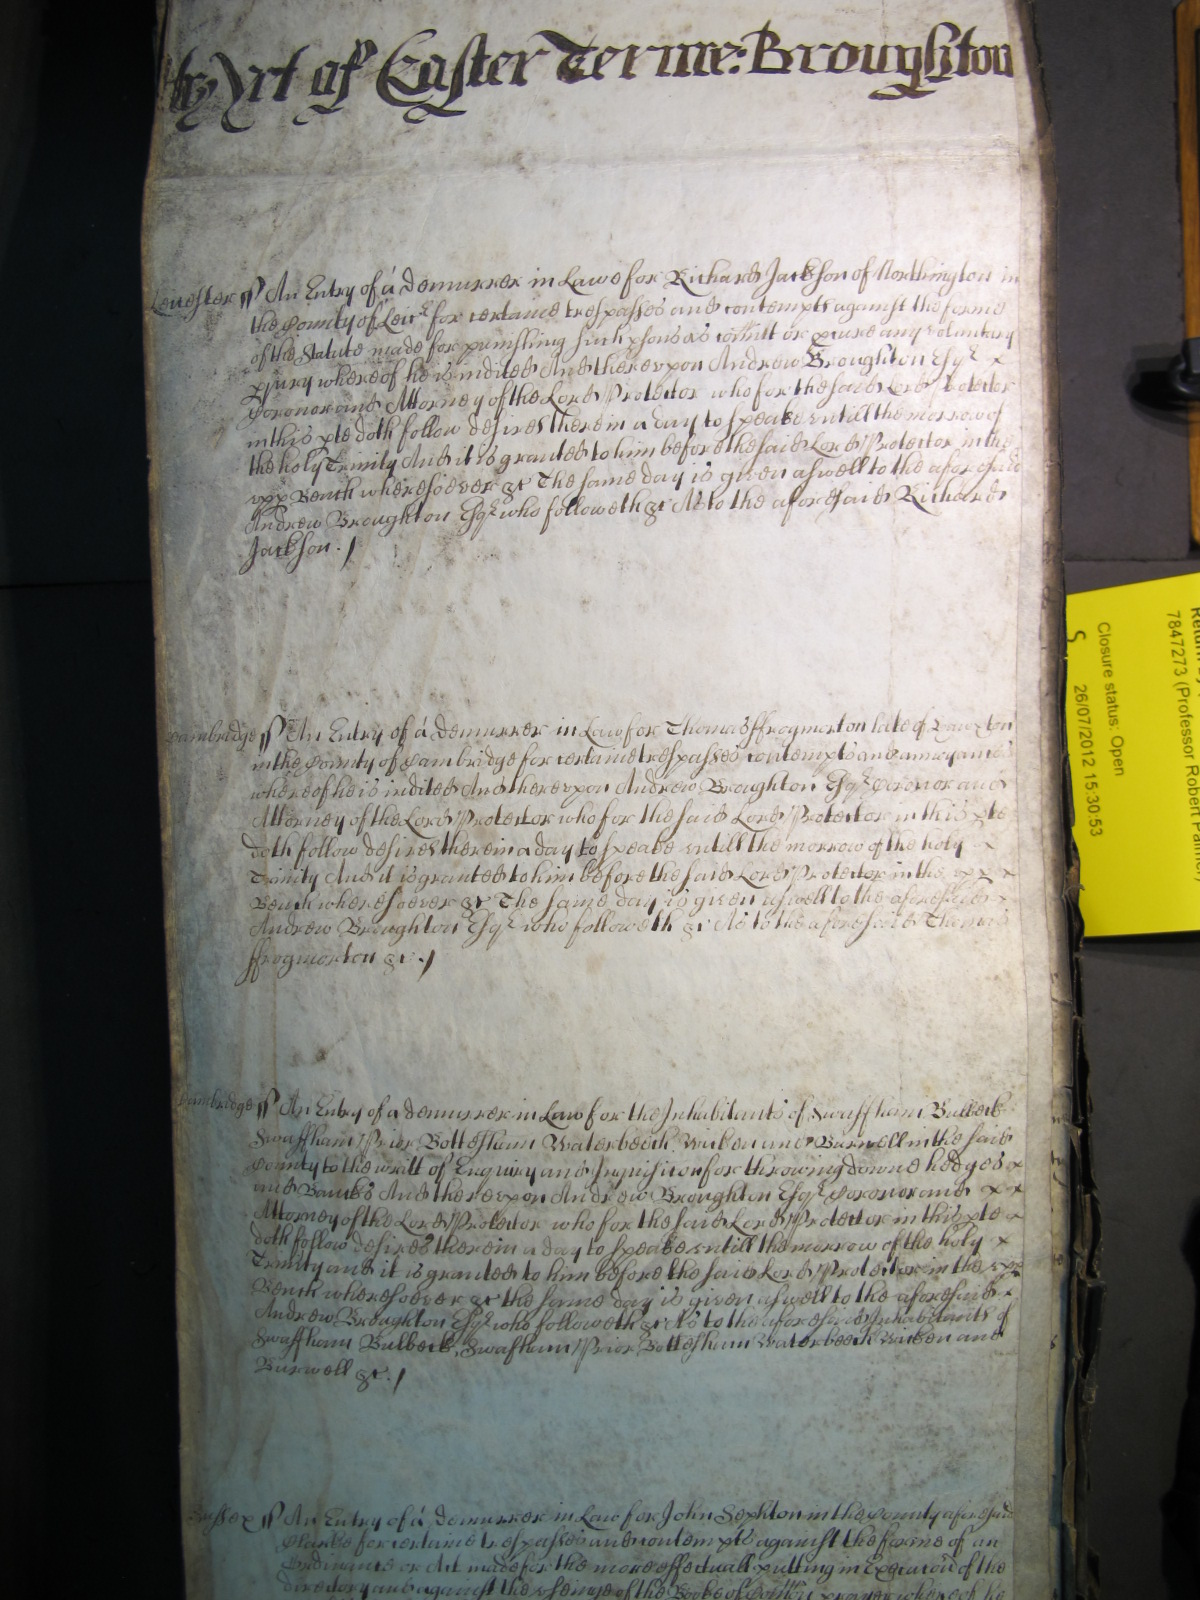 by Act of Easter Terme: Broughton
Leicester ss An Entry of a demurrer in Lawe for Richard Jackson of Northington in
the County of Leicr for certaine trespasses and contempts against the forme
of the Statute made for punishing such psons as comitt or pcure any voluntary
pjury whereof he is indited And therevpon Andrew Broughton Esqr x
Coronor and Attorney of the Lord Protector who for the said Lord Protector
in this pte doth follow desires therein a day to speake vntill the morrow of
the holy Trinity And it is granted to him before the said Lord Protector in the
vpp Bench wheresoever &c The same day is given aswell to the aforesaid
Andrew Broughton Esqr who followeth &c As to the aforesaid Richard
Jackson . /
Cambridge ss An Entry of a demurrer in Law for Thomas ffrogmorton late of
in the County of Cambridge for certaine trespasses contempts and
whereof he is indited And therevpon Andrew Broughton Esqr Coronor and
Attorney of the Lord Protector who for the said Lord Protector in this pte
doth follow desires therein a day to speake vntill the morrow of the holy x
Trinity And it is granted to him before the said Lord Protector in the vpp x
Bench wheresoever &c The same day is given aswell to the aforesaid
Andrew Broughton Esqr who followeth &c As to the aforesaid Thomas
ffrogmorton &c . /
Cambridge ss An Entry of a demurrer in Law for the Inhabitants of Swaffham Bulbeck
Swaffham Prior Bottesham Waterbeech Wicken and Burwell in the said
County to the writt of Enquiry and Inquisition for throwing downe hedges x
and Bancks And therevpon Andrew Broughton Esqr Coronor and x x
Attorney of the Lord Protector who for the said Lord Protector in this pte x
doth follow desires therein a day to speake vntill the morrow of the holy x
Trinity and it is granted to him before the said Lord Protector in the vpp
Bench wheresoever &c the same day is given aswell to the aforesaid x
Andrew Broughton Esqr who followeth &c As to the aforesaid Inhabitants of
Swaffham Bulbeck, Swafham Prior Bottesham Waterbeech Wicken and
Burwell &c . /
Sussex ss An Entry of a demurrer in Law for John Sephton in the County aforesaid
Clarke for certaine trespasses and contempts against the forme of an
Ordinance or Act made for the more effectuall putting in Execucon of the
directory and against the of the Booke of Comon prayer whereof he
7847273 (Professor Robert Palmer)
Closure status: Open
26/07/2012 15:30:53
S